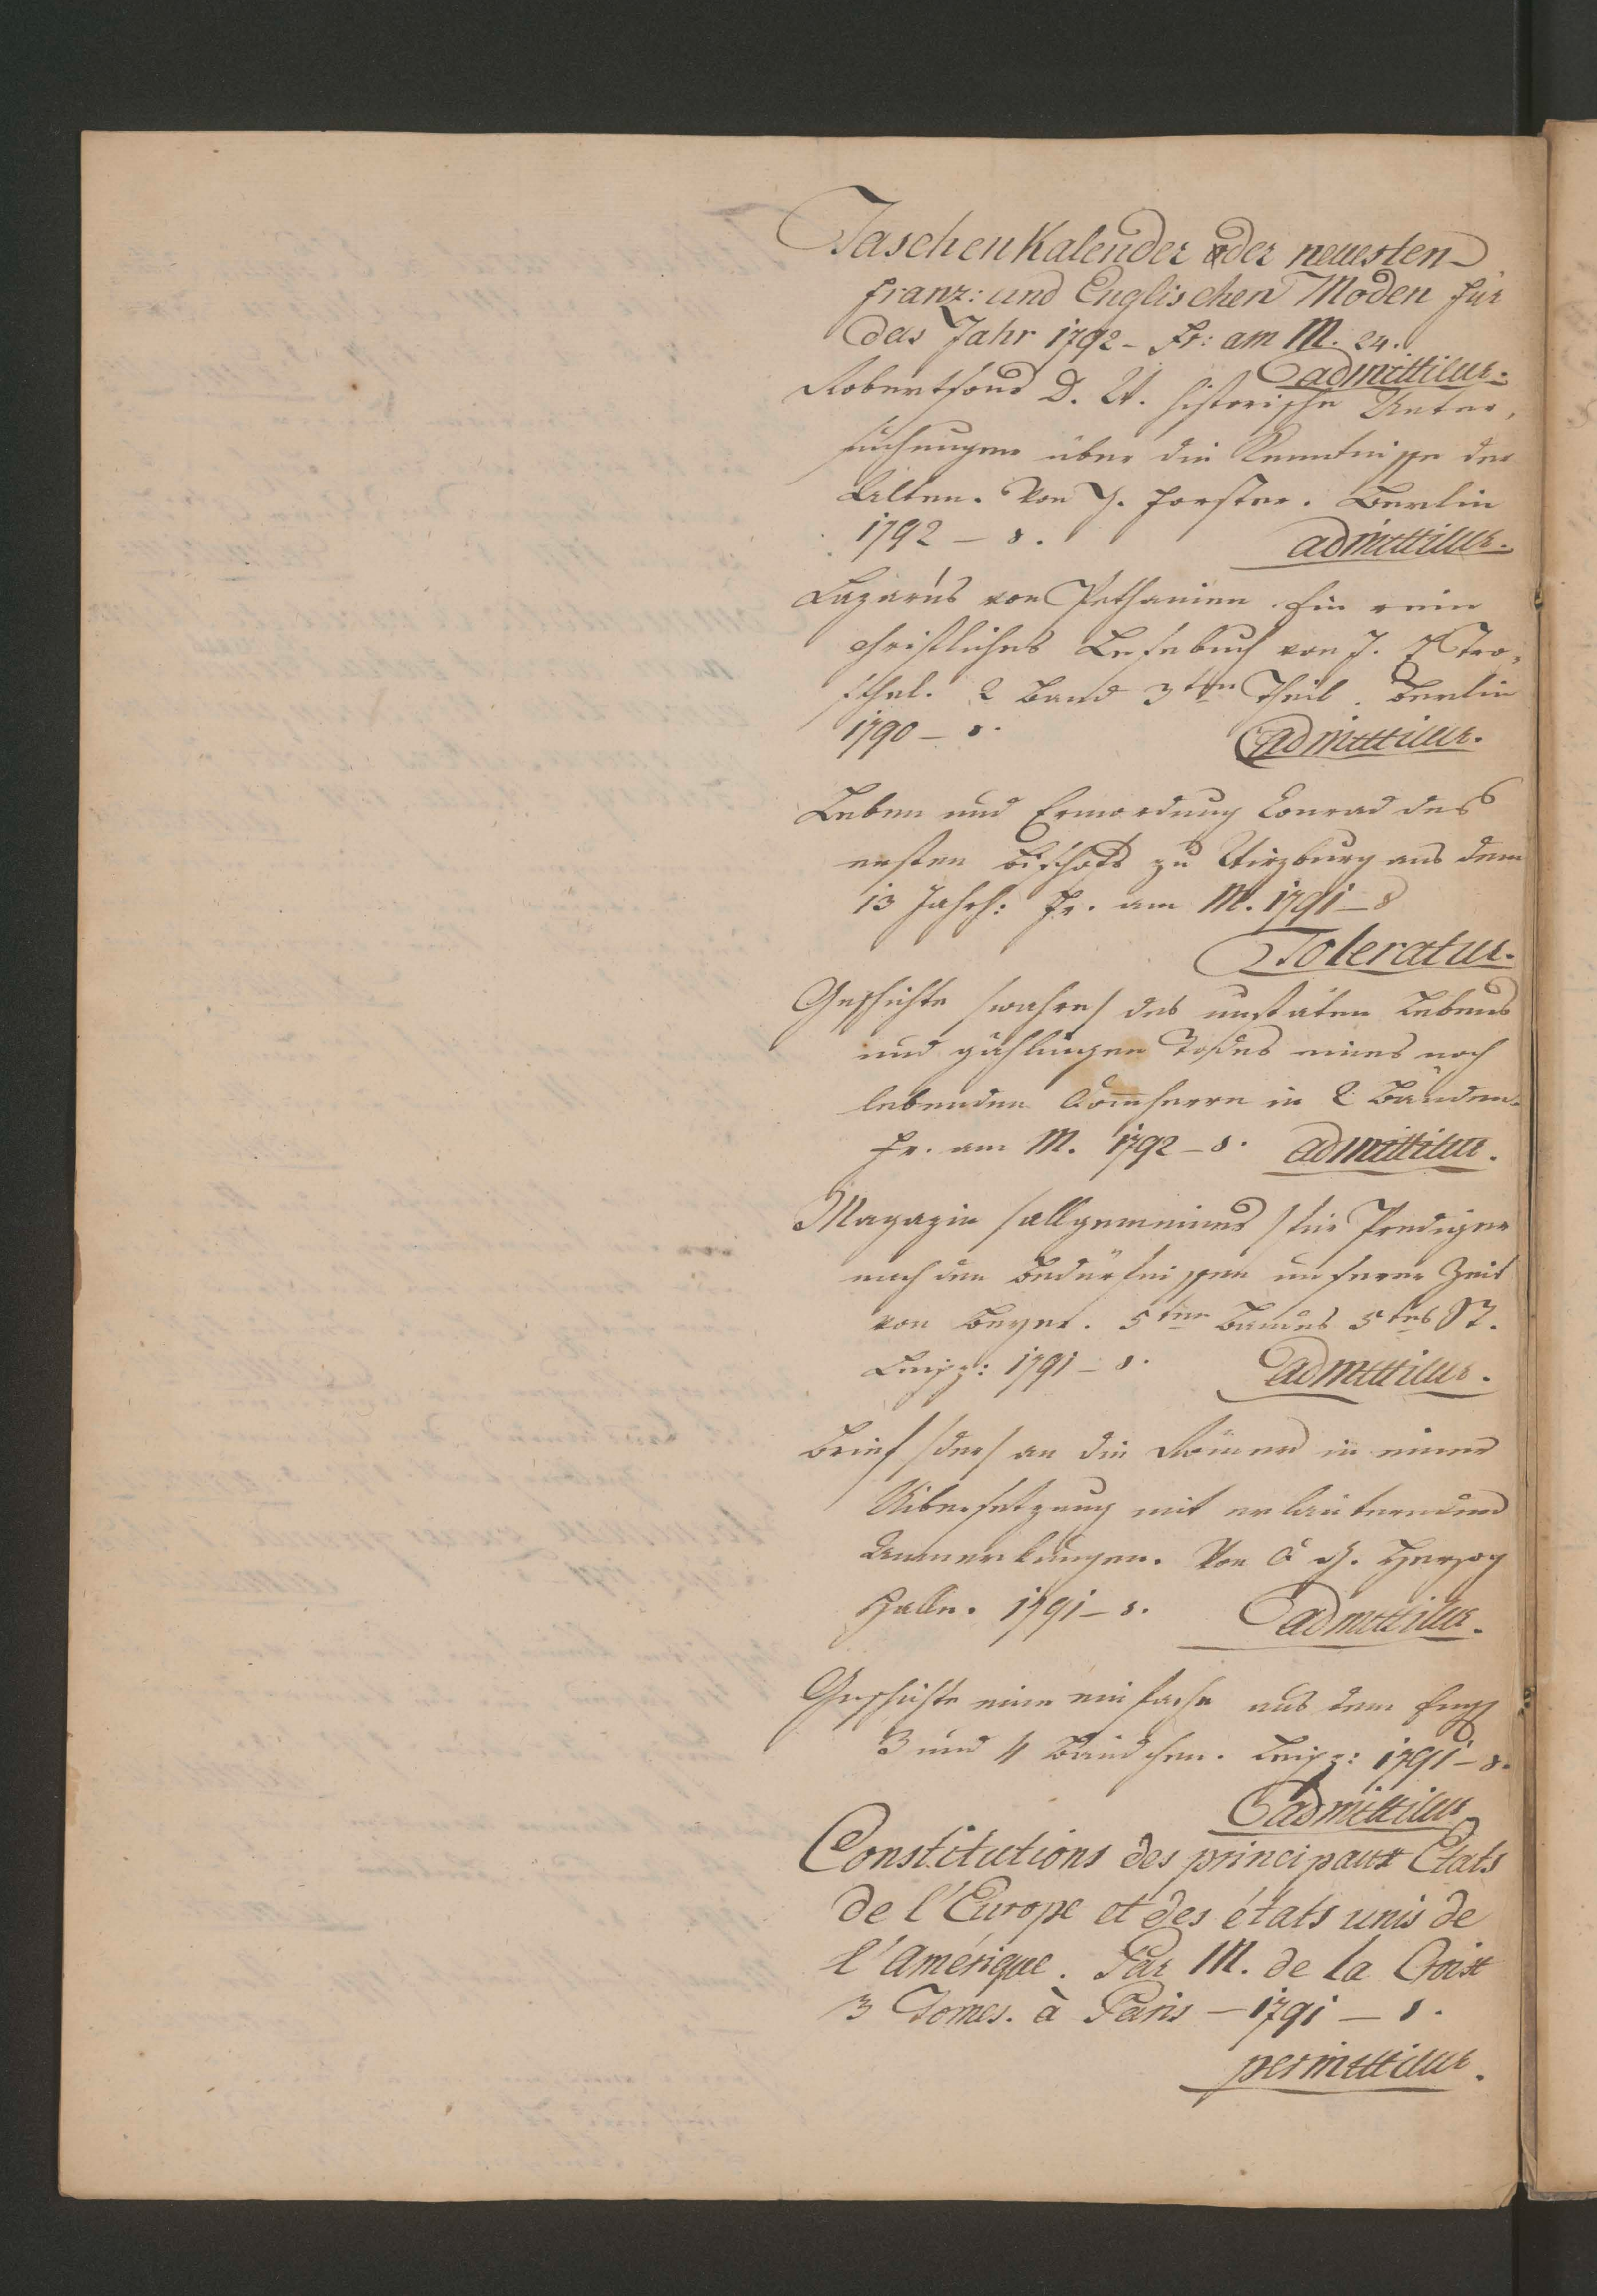 Taschenkalender der neuesten
franz: und Englischen Moden für
das Jahr 1792 - Fr: am M. 24.
admittitur.
Robertsons D. W. historische Unter,
suchungen über die Kenntnisse der
Alten. Von G. Forster. Berlin
1792 - 8.
admittitur.
Lazarus von Bethanien. Ein rein
christliches Lesebuch von J.
2 Band 3ten Theil. Berlin
1790 - 8.
admittitur.
Leben und Ermordung Conrad des
ersten Bischofs zu Wirzburg aus dem
13 Jahrh: Fr. am M. 1791 - 8
Toleratur.
Geschichte /wahre/ des unstäten Lebens
und gählingen Todes eines noch
lebenden Domherrn in 2 Bänden.
Fr. am M. 1792 - 8. admittitur.
Magazin /allgemeines/ für Prediger
nach den Bedürfnissen unserer Zeit
von Beyer. 5ten Bandes 5tes St.
Leipz: 1791 - 8. admittitur.
Brief /der/ an die Römer in einer
Uibersetzung mit erläuternden
Anmerkungen. Von C. G. Herzog
Halle. 1791 - 8. admittitur.
Geschichte eine einfache aus dem Engl
3 und 4 Bändchen. Leipz: 1791 - 8.
admittitur
Constitutions des principaux Etats
de l'Europe et des états unis de
l'Amérique. Par M. de la Croix
3 Tomes. à Paris - 1791 - 8.
permittitur.